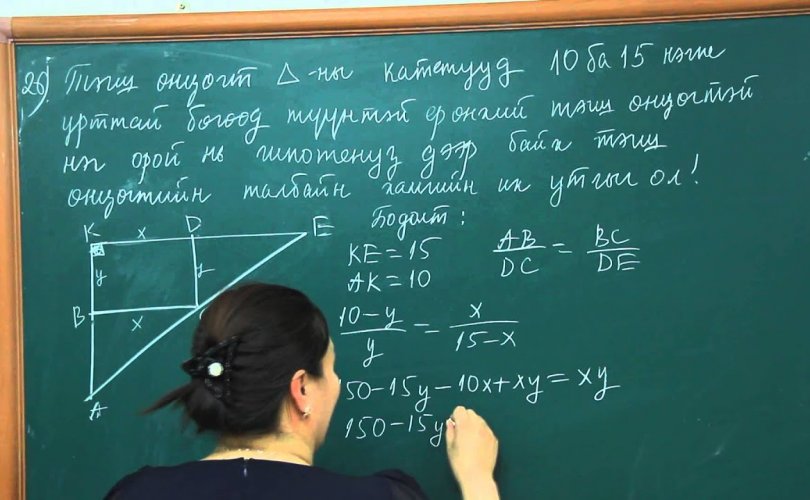 26) Тэгш өнцөгт △-ны катетууд 10 ба 15 нэгж
урттай бөгөөд түүнтэй ерөнхий тэгш өнцөгтэй
нэг орой нь гипотенуз дээр байх тэгш
өнцөгтийн талбайн хамгийн их утгыг ол!
Бодолт:
K x D E
KE = 15
AB/DC = BC/DE
AK = 10
y y
B x
10-y/y = x/15-x
50-15y-10x+xy = xy
A
150-15y